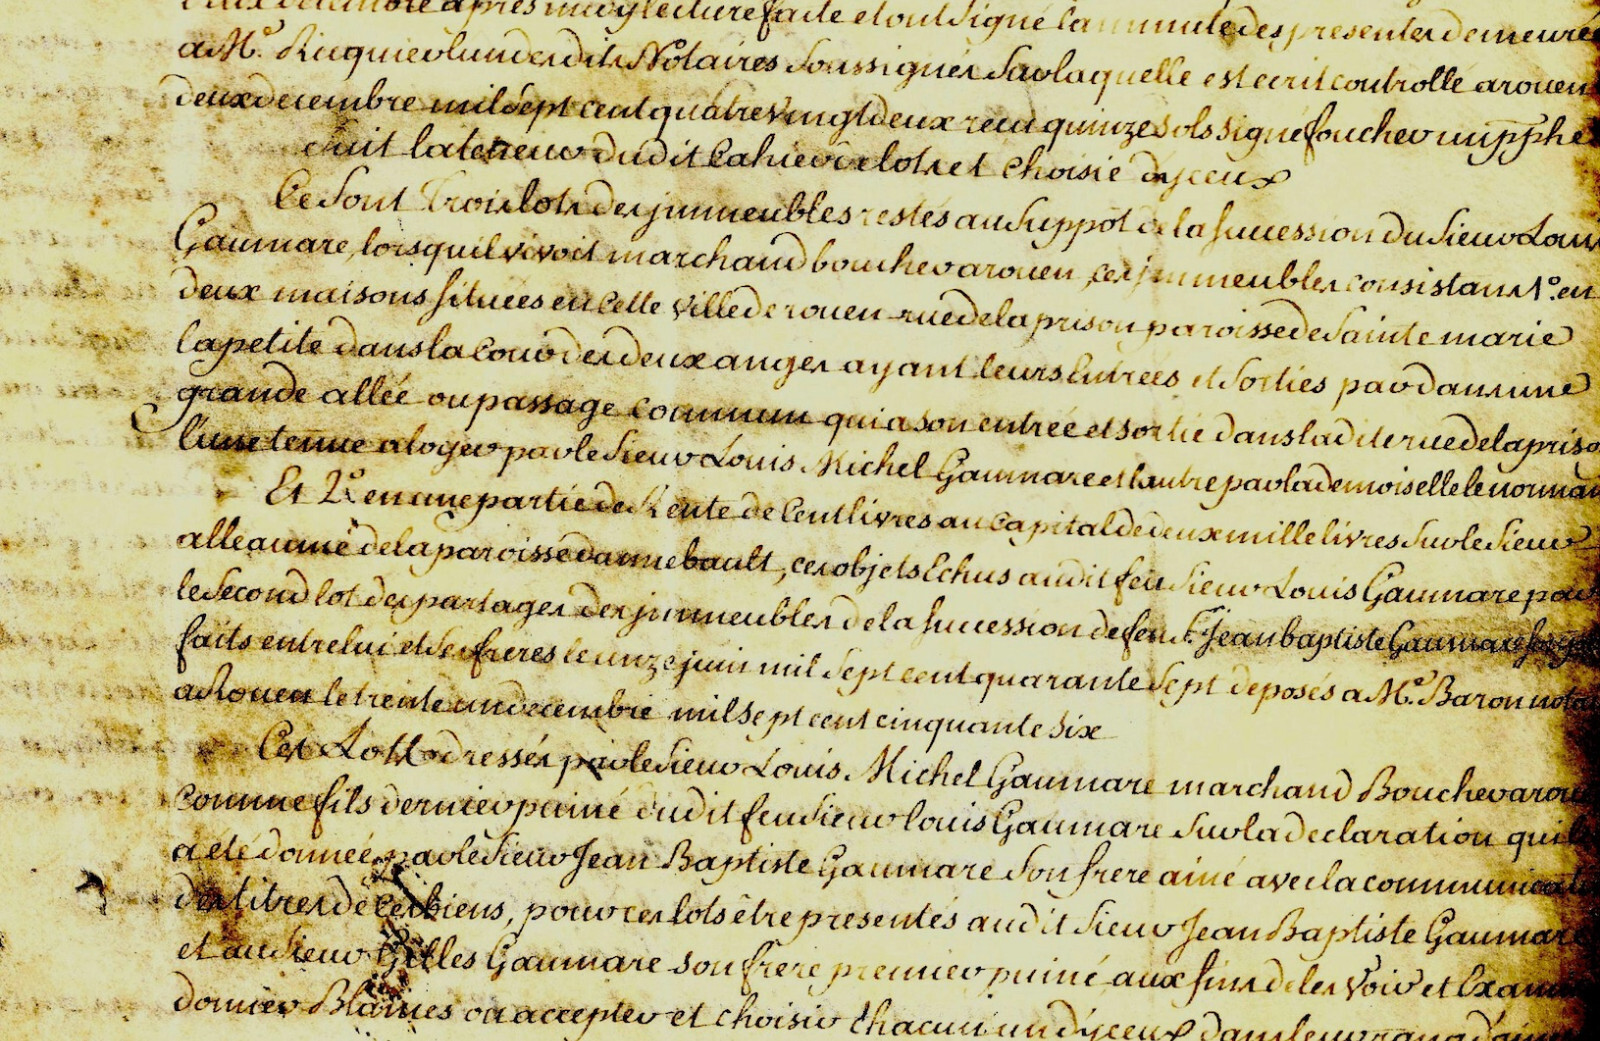 deux decembre apres midy lecture faite et ont signé la minutte des presentes demeurée
a Me. Ricquier lun desdits Notaires Soussignés Sur laquelle est ecrit controllé a rouen
deux decembre mil sept cent quatre vingt deux recu quinze sols signé foucher
Suit la teneur dudit Cahier de lots et choisie d'yceux
Ce Sont Trois lots des jmmeubles restés au Suppot de la Succession du Sieur Louis
Gaumare, lorsquil vivoit marchand boucher a rouen, ces jmmeubles consistans 1°. en
deux maisons situées en cette ville de rouen rue de la prison paroisse de Sainte marie
la petite dans la Cour des deux anges ayant leurs Entrées et Sorties par dans une
grande allée ou passage commun qui a son entrée et sortie dans ladite rue de la prison
l'une tenue a loyer par le Sieur Louis Michel Gaumare et lautre par la demoiselle
Et 2°. en une partie de Rente de Cent livres au capital de deux mille livres Sur le Sieur
alleaume de la paroisse dannebault, ces objets Echus audit feu Sieur Louis Gaumare par
le Second lot des partages des jmmeubles de la Succession de feu Sr. Jean baptiste Gaumare
faits entre lui et Ses freres le onze juin mil Sept cent quarante Sept deposés a Me. Baron
a Rouen le trente un decembre mil Sept cent cinquante Six
Ces Lots dressés par le Sieur Louis Michel Gaumare marchand Boucher a rouen
comme fils dernier puiné dudit feu Sieur louis Gaumare Sur la declaration qui
a été donnée par le Sieur Jean Baptiste Gaumare Son frere ainé avec la
des titres de ces biens, pour ces lots être presentés audit Sieur Jean Baptiste Gaumare
et au Sieur Gilles Gaumare son frere premier puiné aux fins de les Voir et
donner Blames ou accepter et choisir chacun un d'yceux dans leur rang